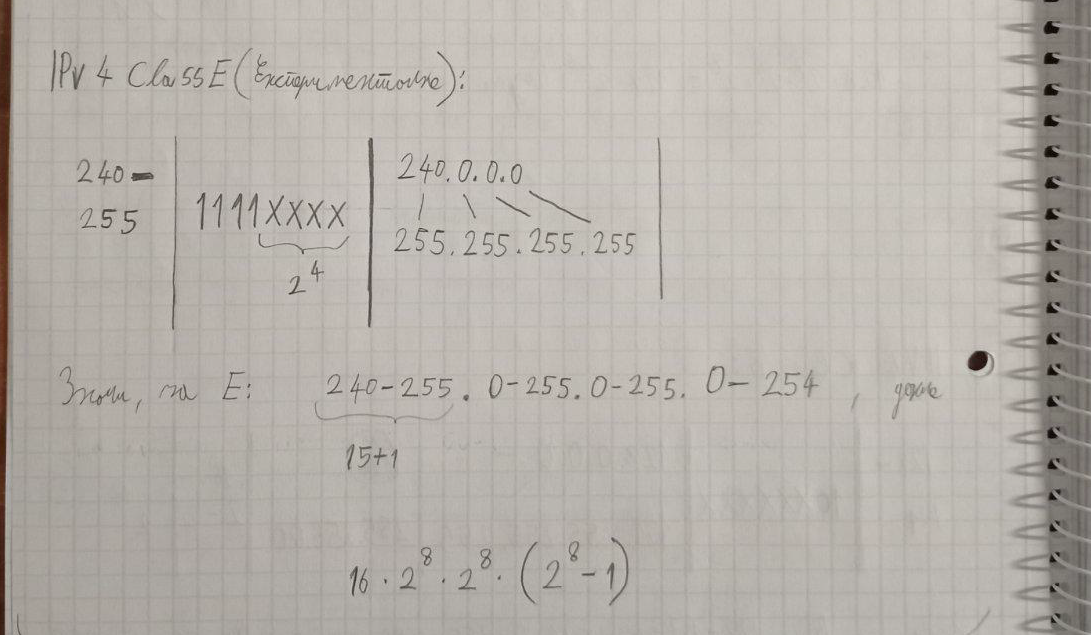 IPv4 Class E (Експериментално):
240-
255
1111xxxx
2^4
240.0.0.0
255.255.255.255
Значи, за E: 240-255. 0-255. 0-255. 0-254,
15+1
16 · 2^8 · 2^8 · (2^8 - 1)